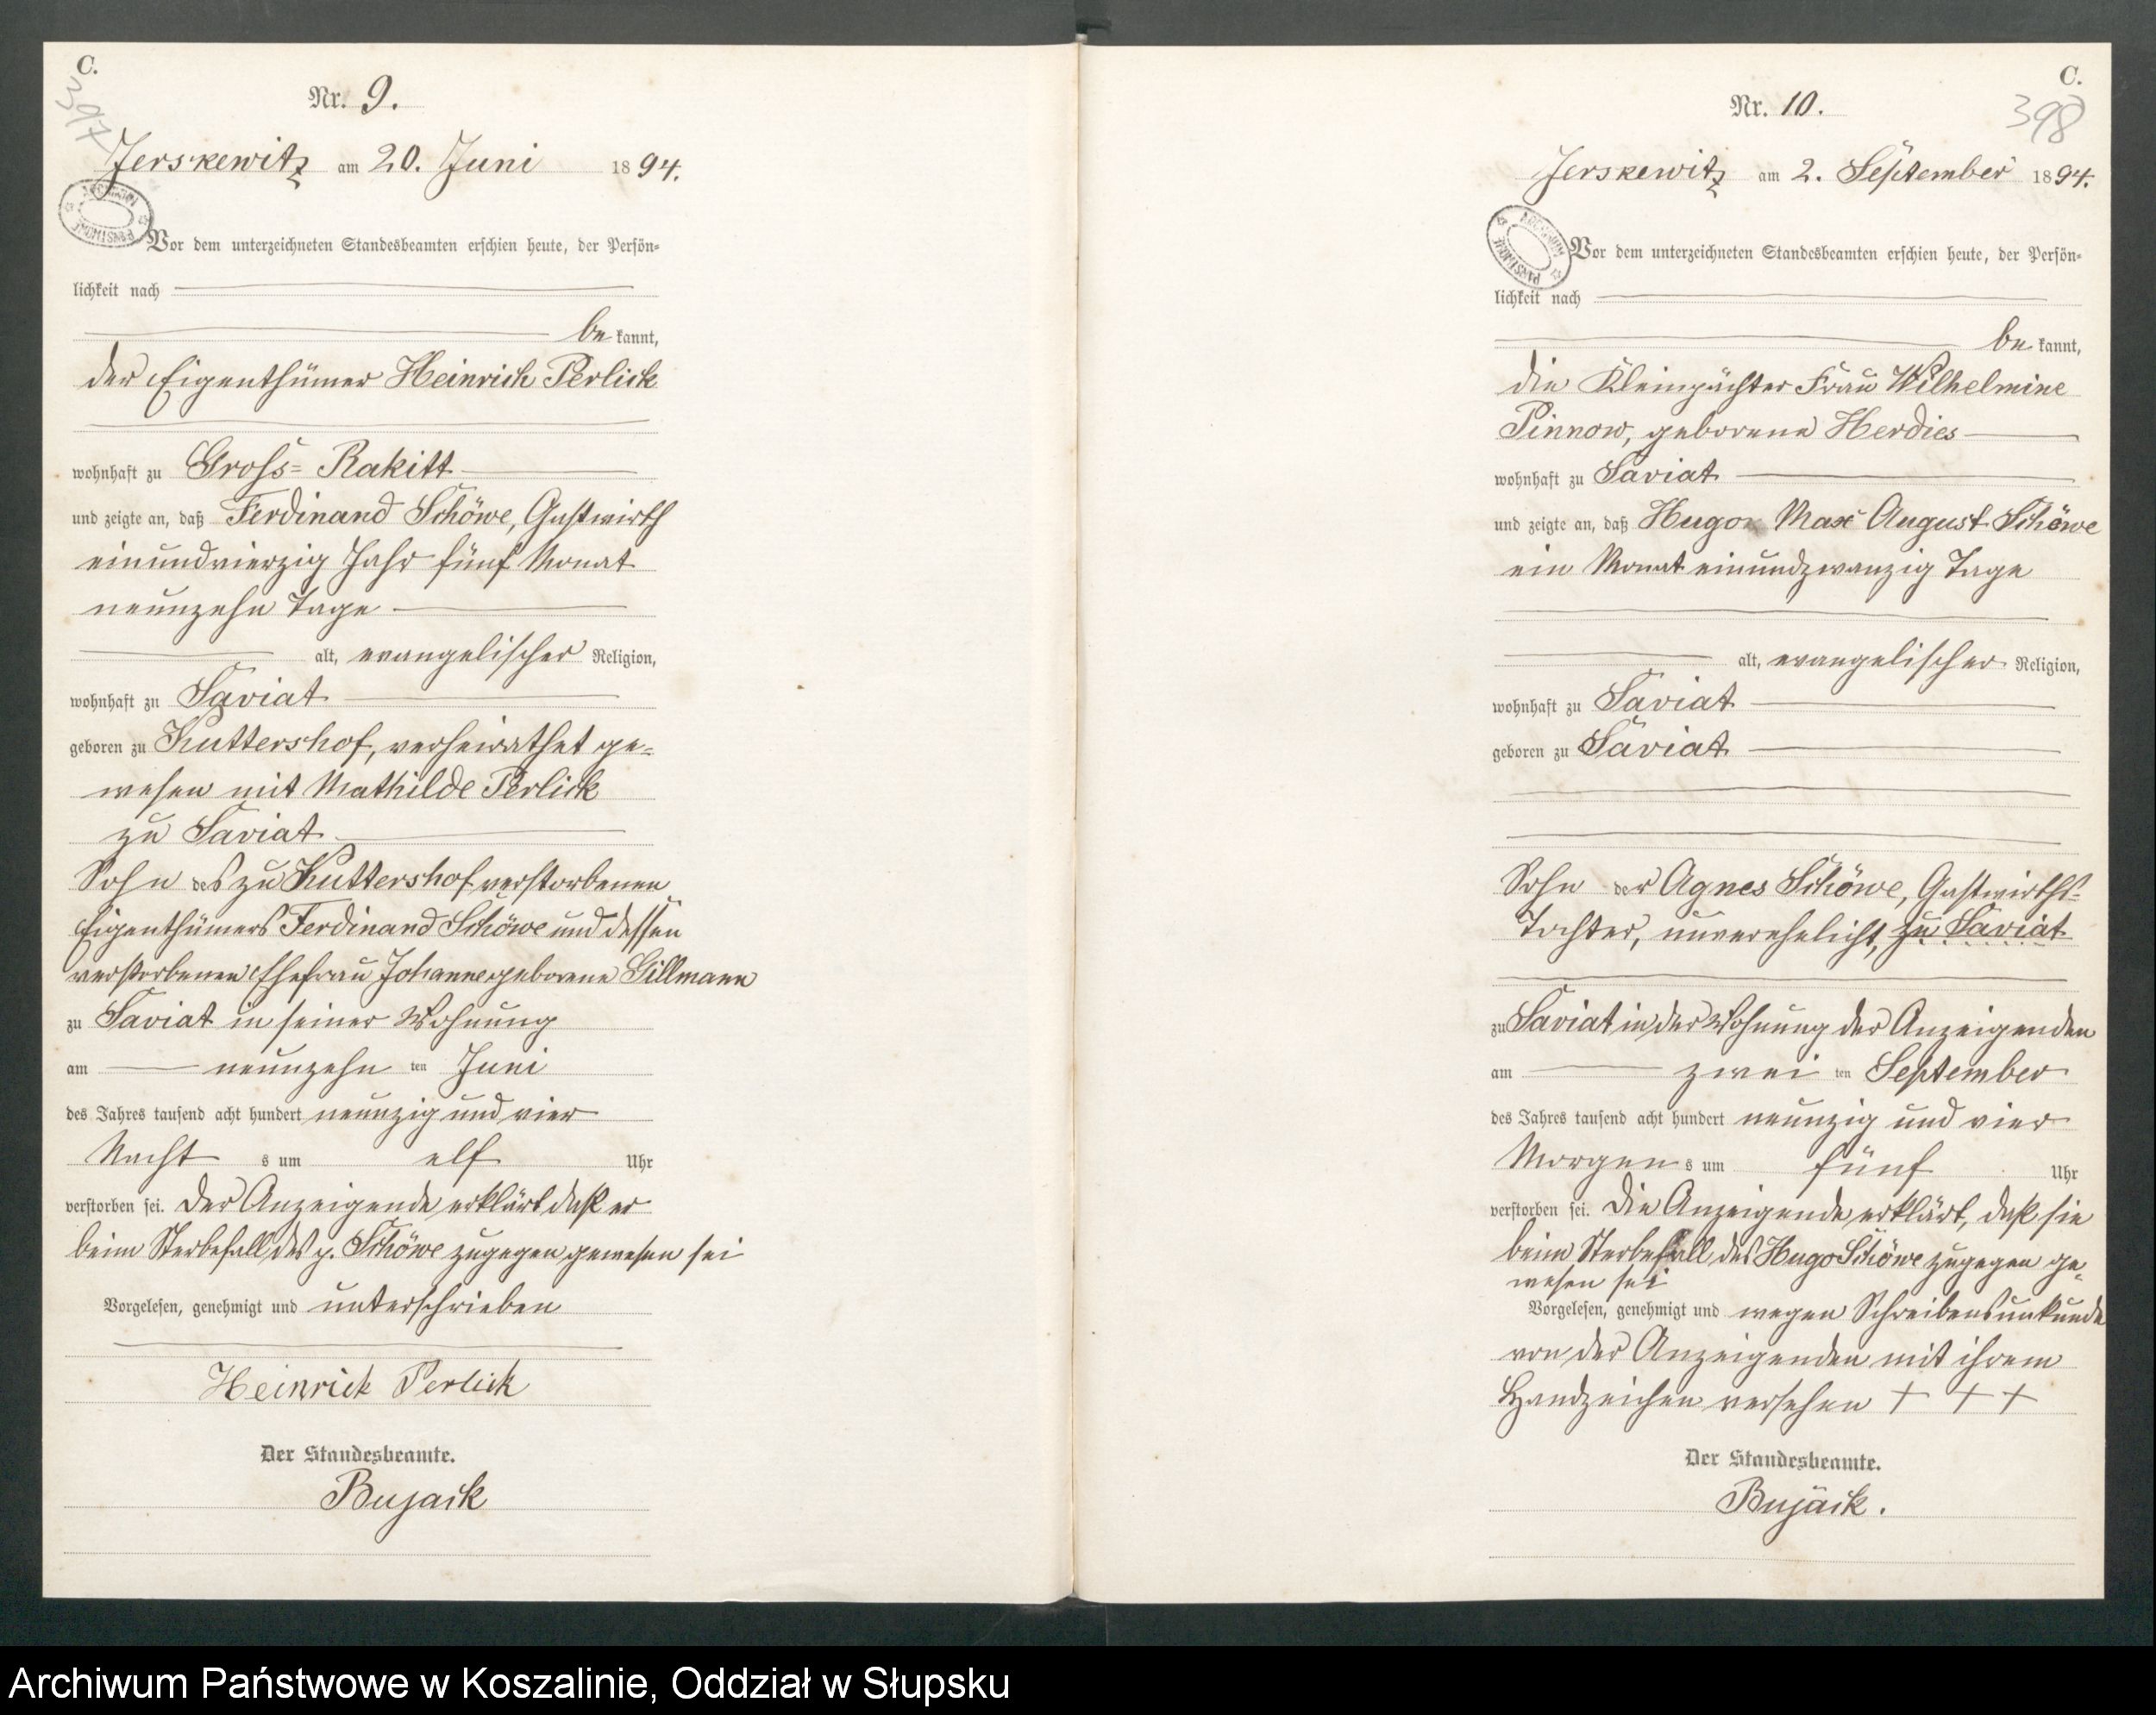 C.
397
Nr. 9.
Jerskewitz am 20. Juni 1894.
Vor dem unterzeichneten Standesbeamten erschien heute, der Persön-
lichkeit nach
be kannt,
der Eigenthümer Heinrich Perlick
wohnhaft zu Gross-Rakitt
und zeigte an, daß Ferdinand Schöwe, Gastwirth
einundvierzig Jahr fünf Monat
neunzehn Tage
alt, evangelischer Religion,
wohnhaft zu Saviat
geboren zu Kuttershof, verheirathet ge-
wesen mit Mathilde Perlick
zu Saviat
Sohn des zu Kuttershof verstorbenen
Eigenthümers Ferdinand Schöwe und dessen
verstorbenen Ehefrau Johanne geborene Gillmann
zu Saviat in seiner Wohnung
am neunzehn ten Juni
des Jahres tausend acht hundert neunzig und vier
Nacht s um elf Uhr
verstorben sei. Der Anzeigende erklärt daß er
beim Sterbefall des p. Schöwe zugegen gewesen sei
Vorgelesen, genehmigt und unterschrieben
Heinrich Perlick
Der Standesbeamte.
Bujack
C.
398
Nr. 10.
Jerskewitz am 2. September 1894.
Vor dem unterzeichneten Standesbeamten erschien heute, der Persön-
lichkeit nach
be kannt,
die Kleinpächter Frau Wilhelmine
Pinnow, geborene Herdies
wohnhaft zu Saviat
und zeigte an, daß Hugo Max August Schöwe
ein Monat einundzwanzig Tage
alt, evangelischer Religion,
wohnhaft zu Saviat
geboren zu Saviat
Sohn der Agnes Schöwe, Gastwirths-
Tochter, unverehelicht, zu Saviat
zu Saviat in der Wohnung der Anzeigenden
am zwei ten September
des Jahres tausend acht hundert neunzig und vier
Morgen s um fünf Uhr
verstorben sei. Die Anzeigende erklärt, daß sie
beim Sterbefall des Hugo Schöwe zugegen ge-
wesen sei
Vorgelesen, genehmigt und wegen Schreibensunkunde
von der Anzeigenden mit ihrem
Handzeichen versehen + + +
Der Standesbeamte.
Bujack.
Archiwum Państwowe w Koszalinie, Oddział w Słupsku